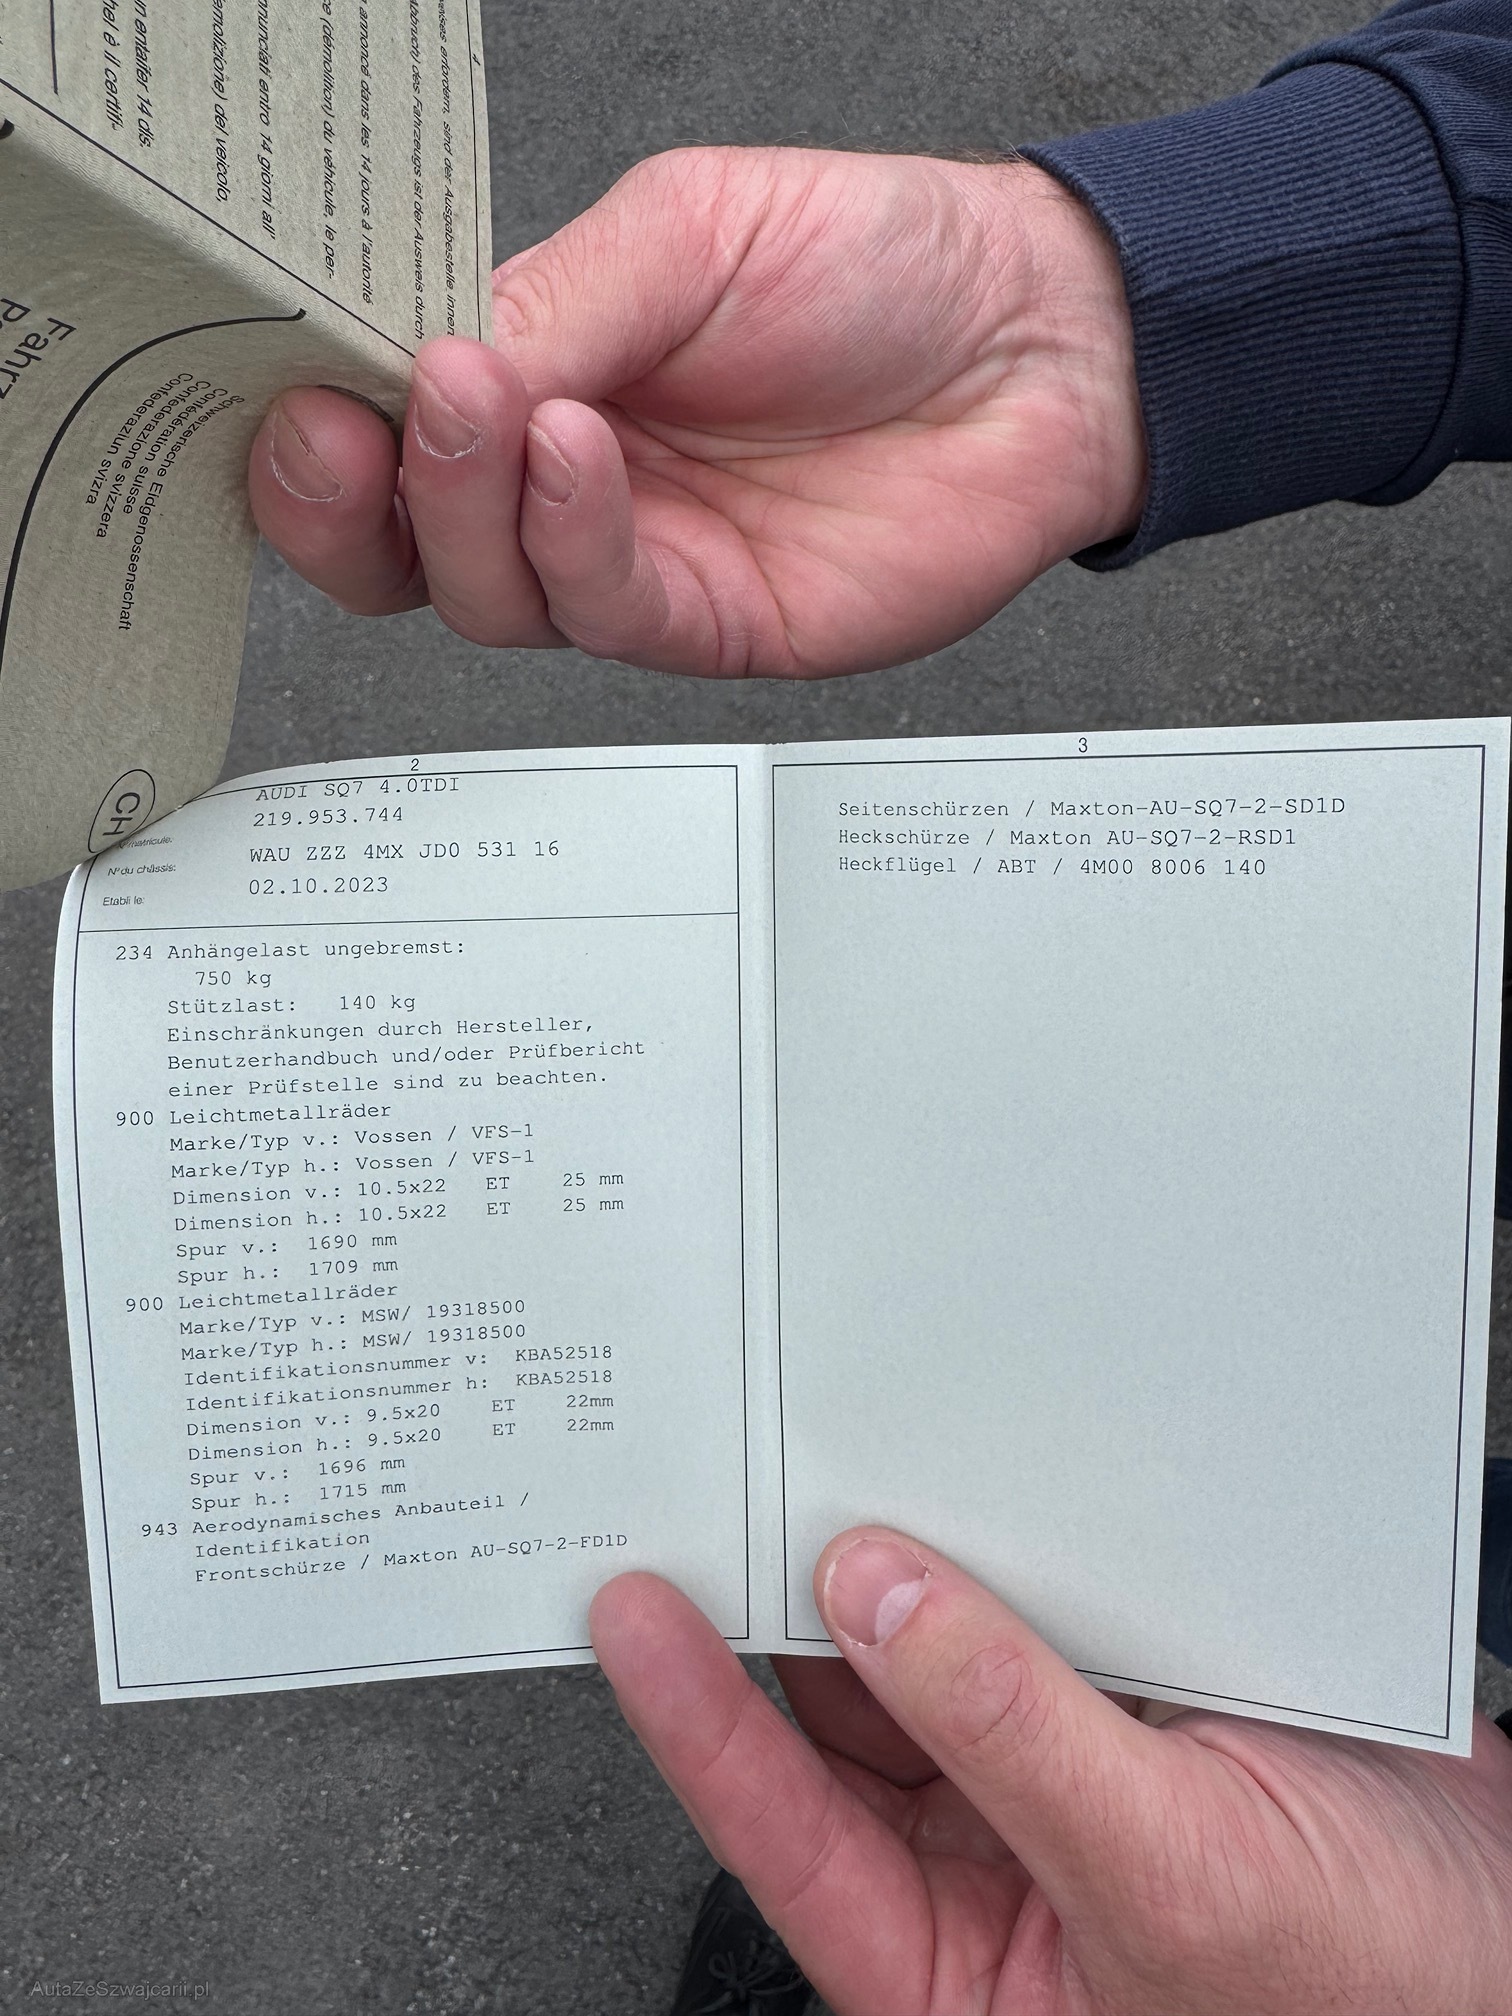 4
weises erfordern, sind der Ausgabestelle innen
bbruch) des Fahrzeugs ist der Ausweis durch
annoncé dans les 14 jours à l'autorité
ce (démolition) du véhicule, le per-
nnunciati entro 14 giorni all'
emolizione) del veicolo,
n entaifer 14 dis.
hel è il certifi-
Fahrz
Schweizerische Eidgenossenschaft
Confédération suisse
Confederazione svizzera
Confederaziun svizra
CH
2
AUDI SQ7 4.0TDI
matricule: 219.953.744
N° du châssis: WAU ZZZ 4MX JD0 531 16
Etabli le: 02.10.2023
234 Anhängelast ungebremst:
750 kg
Stützlast: 140 kg
Einschränkungen durch Hersteller,
Benutzerhandbuch und/oder Prüfbericht
einer Prüfstelle sind zu beachten.
900 Leichtmetallräder
Marke/Typ v.: Vossen / VFS-1
Marke/Typ h.: Vossen / VFS-1
Dimension v.: 10.5x22 ET 25 mm
Dimension h.: 10.5x22 ET 25 mm
Spur v.: 1690 mm
Spur h.: 1709 mm
900 Leichtmetallräder
Marke/Typ v.: MSW/ 19318500
Marke/Typ h.: MSW/ 19318500
Identifikationsnummer v: KBA52518
Identifikationsnummer h: KBA52518
Dimension v.: 9.5x20 ET 22mm
Dimension h.: 9.5x20 ET 22mm
Spur v.: 1696 mm
Spur h.: 1715 mm
943 Aerodynamisches Anbauteil /
Identifikation
Frontschürze / Maxton AU-SQ7-2-FD1D
3
Seitenschürzen / Maxton-AU-SQ7-2-SD1D
Heckschürze / Maxton AU-SQ7-2-RSD1
Heckflügel / ABT / 4M00 8006 140
AutaZeSzwajcarii.pl